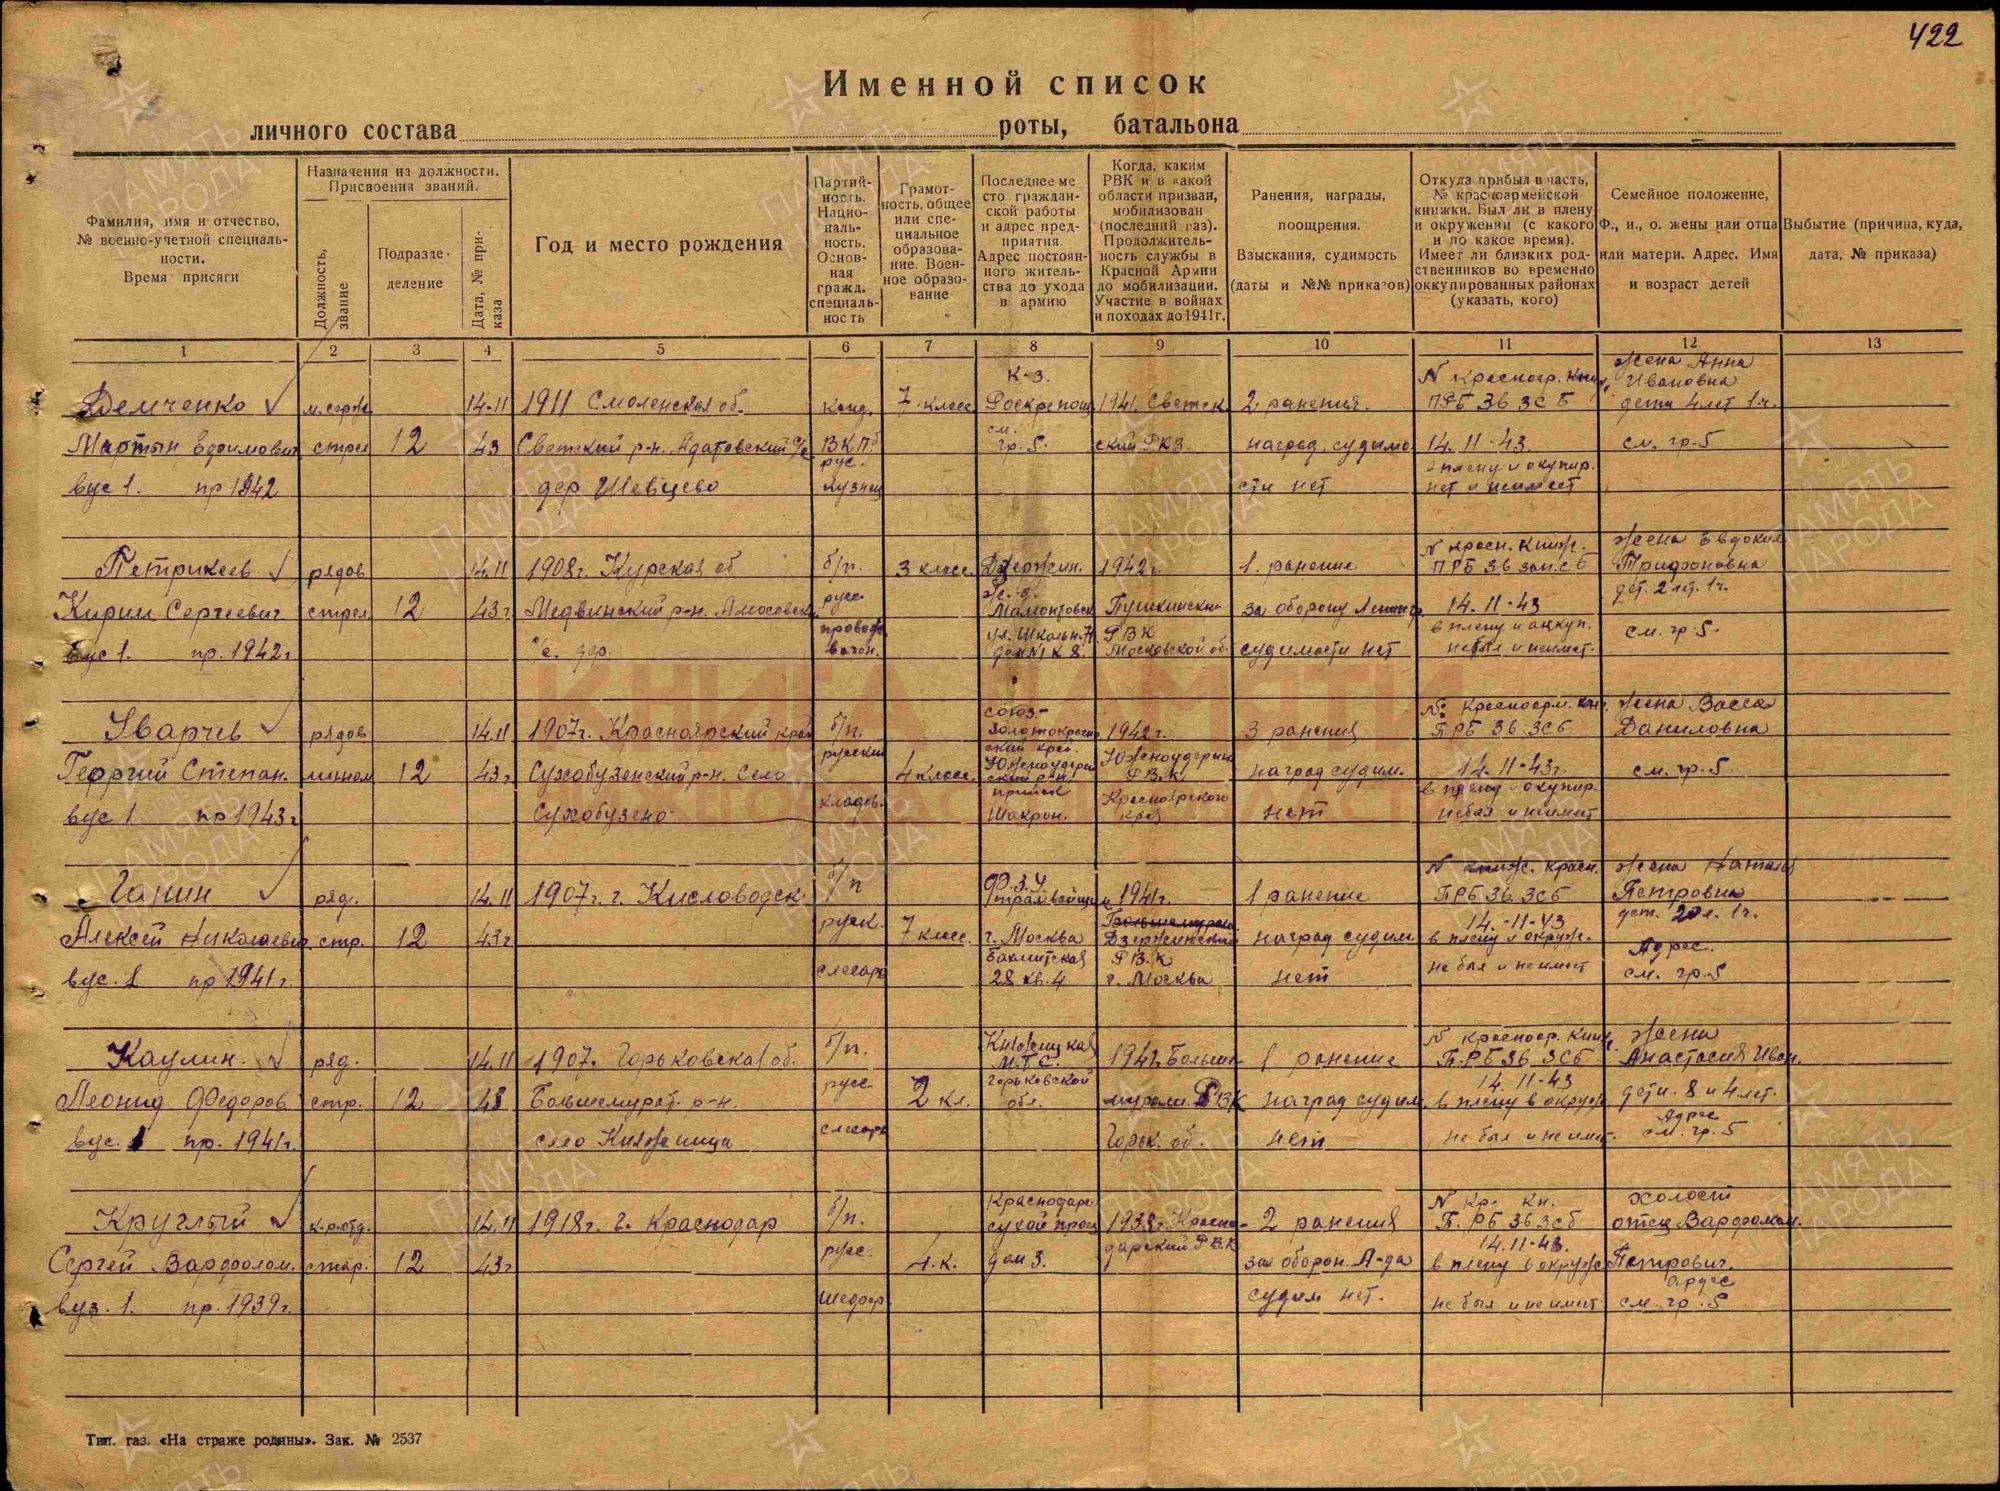 422
Именной список
личного состава роты, батальона
Фамилия, имя и отчество, № военно-учетной специальности. Время присяги
Назначения на должности. Присвоения званий.
Должность, звание
Подразделение
Дата, № приказа
Год и место рождения
Партийность. Национальность. Основная гражд. специальность
Грамотность, общее или специальное образование. Военное образование
Последнее место гражданской работы и адрес предприятия. Адрес постоянного жительства до ухода в армию
Когда, каким РВК и в какой области призван, мобилизован (последний раз). Продолжительность службы в Красной Армии до мобилизации. Участие в войнах и походах до 1941г.
Ранения, награды, поощрения. Взыскания, судимость (даты и №№ приказов)
Откуда прибыл в часть, № красноармейской книжки. Был ли в плену и окружении (с какого и по какое время). Имеет ли близких родственников во временно оккупированных районах (указать, кого)
Семейное положение, Ф., и., о. жены или отца или матери. Адрес. Имя и возраст детей
Выбытие (причина, куда, дата, № приказа)
1 2 3 4 5 6 7 8 9 10 11 12 13
К-з. жена Анна
N красноар. Ивановна
Демченко м.серж 14.11 1911 Смоленская об. канд. 7 класс 1941 2 ранения. ПРБ 36 ЗСБ дети 4 лет 1ч.
Мартын стрел 12 43 р-н. ВКПб см. гр. 5. ский РВК наград. судимо 14.11-43. см. гр. 5
рус. в плену и окупир.
вус 1. пр 1942 дер Шевцево кузнец сти нет нет и неимеет
N красн. книж. жена Евдокия
Петрикеев рядов 14.11 1908г. Курская об б/п. 3 класс. Дзержин. 1942г 1. ранение ПРБ 36 зап. сб Трифоновна
русс. ж. д. дет. 2 лет. 1ч.
Кирил Сергеевич стрел. 12 43г Медвинский р-н. Амосовск. Мамонтовск Пушкинский за оборону 14.11-43
ул. Школьн. РВК в плену и см. гр. 5.
вус 1. пр. 1942г с/с. дер. вагон. дом №1 к 8. Московской об. судимости нет небыл и неимет.
союз- N красноарм. кн. жена Васса
Уварчев рядов 14.11 1907г. Красноярский край б/п. 1942г. 3 ранения ПРБ 36 ЗСБ Даниловна
русский край.
Георгий Степан. 12 43г Сухобузенский р-н. Село 4 класс. РВК. наград судим. 14.11-43г. см. гр. 5
кладов. прииск Красноярского в плену и окупир.
вус 1 пр 1943г Сухобузено край нет небыл и неимеет
Ф.З.У. N книж. красн. жена Наталья
Ганин ряд. 14.11 1907г. г. Кисловодск б/п 1941г. 1 ранение ПРБ 36. ЗСБ Петровна
русск. 14.-11-43
Алексей Николаевич. стр. 12 43г 7 класс. г. Москва Дзержинский наград судим. в плену и окруж. Адрес.
РВ.К
вус. 1 пр 1941г. слесарь 28 кв. 4 г. Москва нет не был и неимет см. гр. 5
N красноар. книж. жена
Каулин. ряд. 14.11 1907. Горьковская об. б/п. М.Т.С. 1941г. Больше- 1 ранение П.РБ 36 ЗСБ Анастасия Иван.
русс Горьковской 14.11-43
Леонид Федоров стр. 12 43 р-н. 2 кл. обл. РВК наград судим. в плену в окруж дети. 8 и 4 лет.
слесарь Адрес
вус. 1 пр. 1941г. село Княженица Горьк. об. нет не был и неимет. см. гр. 5
Краснодар. N кр. кн. холост
Круглый к.р.отд. 14.11 1918г. г. Краснодар б/п. 1938г. Красно- 2 ранения П. РБ 36 ЗСБ отец Варфоломей.
русс. 14.11-43.
Сергей Варфолом. стар. 12 43г 4. к. дом 3. дарский РВК за оборон. Л-да в плену в окруж Петрович.
адрес
вуз. 1. пр. 1939г. шофер судим нет. не был и неимет см. гр. 5
Тип. газ. «На страже родины». Зак. № 2537
КНИГА ПАМЯТИ
ПАМЯТЬ НАРОДА